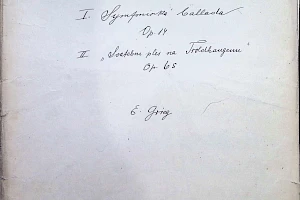 I. Symfonická ballada
Op. 14
II „Svatební ples na Troldhaugenu"
Op 65
E. Grieg